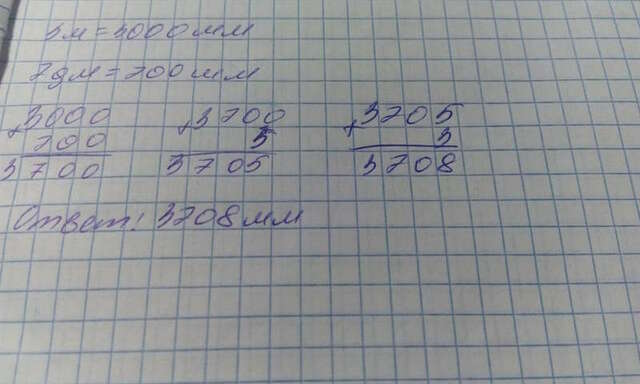 3м = 3000мм
7дм = 700мм
+3000 +3700 +3705
700 5 3
3700 3705 3708
Ответ: 3708мм